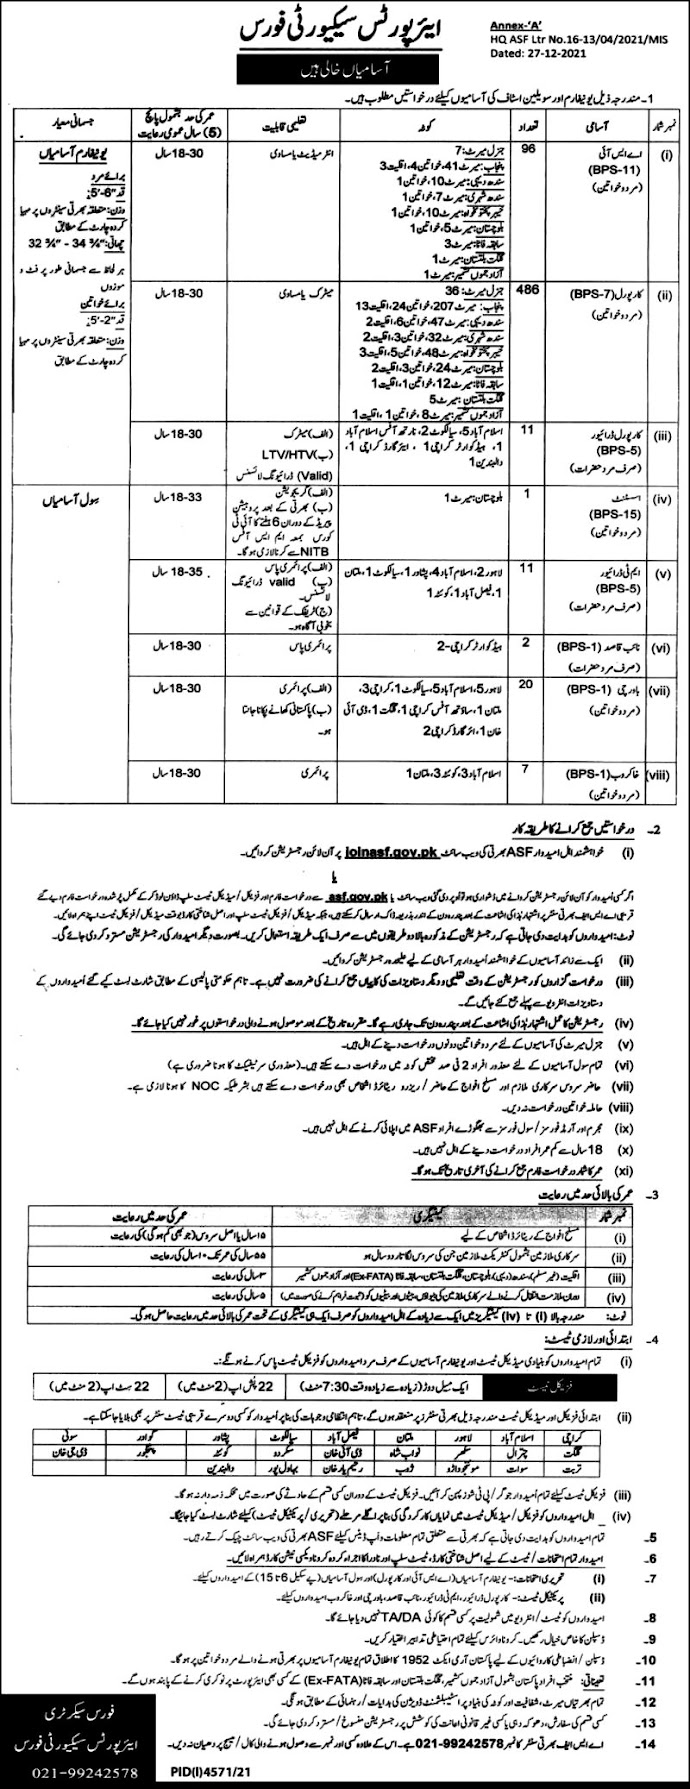 ایئرپورٹس سیکیورٹی فورس
آسامیاں خالی ہیں
Annex-'A'
HQ ASF Ltr No.16-13/04/2021/MIS
Dated: 27-12-2021
1- مندرجہ ذیل یونیفارم اور سویلین اسٹاف کی آسامیوں کیلئے درخواستیں مطلوب ہیں۔
نمبر شمار آسامی تعداد کوٹہ تعلیمی قابلیت عمر کی حد بشمول پانچ (5) سال عمومی رعایت جسمانی معیار
(i) اے ایس آئی (BPS-11) (مرد و خواتین) 96
جنرل میرٹ: 7
پنجاب: میرٹ 41، خواتین 4، اقلیت 3
سندھ دیہی: میرٹ 10، خواتین 1
سندھ شہری: میرٹ 7، خواتین 1
خیبر پختونخواہ: میرٹ 10، خواتین 1
بلوچستان: میرٹ 5، خواتین 1
سابقہ فاٹا: میرٹ 3
گلگت بلتستان: میرٹ 1
آزاد جموں کشمیر: میرٹ 1
انٹرمیڈیٹ یا مساوی
18-30 سال
یونیفارم آسامیاں
برائے مرد
قد "6-'5:
وزن: متعلقہ بھرتی سینٹروں پر مہیا کردہ چارٹ کے مطابق
چھاتی: "¾ 34 - "¾ 32
ہر لحاظ سے جسمانی طور پر فٹ و موزوں
برائے خواتین
قد "2-'5:
وزن: متعلقہ بھرتی سینٹروں پر مہیا کردہ چارٹ کے مطابق
(ii) کارپورل (BPS-7) (مرد و خواتین) 486
جنرل میرٹ: 36
پنجاب: میرٹ 207، خواتین 24، اقلیت 13
سندھ دیہی: میرٹ 47، خواتین 6، اقلیت 2
سندھ شہری: میرٹ 32، خواتین 3، اقلیت 2
خیبر پختونخواہ: میرٹ 48، خواتین 5، اقلیت 3
بلوچستان: میرٹ 24، خواتین 3، اقلیت 2
سابقہ فاٹا: میرٹ 12، خواتین 1، اقلیت 1
گلگت بلتستان: میرٹ 5
آزاد جموں کشمیر: میرٹ 8، خواتین 1، اقلیت 1
میٹرک یا مساوی
18-30 سال
(iii) کارپورل ڈرائیور (BPS-5) (صرف مرد حضرات) 11
اسلام آباد 5، سیالکوٹ 2، نارتھ آفس اسلام آباد 1، ہیڈ کوارٹر کراچی 1، ایئر گارڈ کراچی 1، دالبندین 1
(الف) میٹرک
(ب) LTV/HTV
(Valid) ڈرائیونگ لائسنس
18-30 سال
(iv) اسسٹنٹ (BPS-15) (مرد و خواتین) 1
بلوچستان: میرٹ 1
(الف) گریجویشن
(ب) بھرتی کے بعد پروبیشن پیریڈ کے دوران 6 ہفتے کا آئی ٹی کورس بمعہ ایم ایس آفس NITB سے کرنا لازمی ہوگا۔
18-33 سال
سول آسامیاں
(v) ایم ٹی ڈرائیور (BPS-5) (صرف مرد حضرات) 11
لاہور 2، اسلام آباد 4، پشاور 1، سیالکوٹ 1، ملتان 1، فیصل آباد 1، کوئٹہ 1
(الف) پرائمری پاس
(ب) valid ڈرائیونگ لائسنس۔
(ج) ٹریفک کے قوانین سے بخوبی آگاہ ہو۔
18-35 سال
(vi) نائب قاصد (BPS-1) (صرف مرد حضرات) 2
ہیڈ کوارٹر کراچی-2
پرائمری پاس
18-30 سال
(vii) باورچی (BPS-1) (مرد و خواتین) 20
لاہور 5، اسلام آباد 5، سیالکوٹ 1، کراچی 3، ملتان 1، ساؤتھ آفس کراچی 1، گلگت 1، ڈی آئی خان 1، ائیر گارڈ کراچی 2
(الف) پرائمری
(ب) پاکستانی کھانے پکانا جانتا ہو۔
18-30 سال
(viii) خاکروب (BPS-1) (مرد و خواتین) 7
اسلام آباد 3، کوئٹہ 3، ملتان 1
پرائمری
18-30 سال
2- درخواستیں جمع کرانے کا طریقہ کار
(i) خواہشمند اہل امیدوار ASF بھرتی کی ویب سائٹ joinasf.gov.pk پر آن لائن رجسٹریشن کروائیں۔
یا
اگر کسی امیدوار کو آن لائن رجسٹریشن کروانے میں دشواری ہو تو اوپر دی گئی ویب سائٹ یا asf.gov.pk سے درخواست فارم اور فزیکل/میڈیکل ٹیسٹ سلپ ڈاؤن لوڈ کر کے مکمل پُر شدہ درخواست فارم دیے گئے
قریبی اے ایس ایف بھرتی سنٹر پر اشتہار ہذا کی اشاعت کے بعد پندرہ دن کے اندر بذریعہ ڈاک ارسال کر سکتے ہیں، جبکہ میڈیکل/فزیکل ٹیسٹ سلپ اور اصل شناختی کارڈ بوقت میڈیکل/فزیکل ٹیسٹ اپنے ہمراہ لائیں۔
نوٹ: امیدواروں کو ہدایت دی جاتی ہے کہ رجسٹریشن کے مذکورہ بالا دو طریقوں میں سے صرف ایک طریقہ استعمال کریں۔ بصورت دیگر امیدوار کی رجسٹریشن مسترد کر دی جائے گی۔
(ii) ایک سے زائد آسامیوں کے خواہشمند امیدوار ہر آسامی کے لیے علیحدہ رجسٹریشن کروائیں۔
(iii) درخواست گزاروں کو رجسٹریشن کے وقت تعلیمی و دیگر دستاویزات کی کاپیاں جمع کرانے کی ضرورت نہیں ہے۔ تاہم حکومتی پالیسی کے مطابق شارٹ لسٹ کیے گئے امیدواروں کے
دستاویزات انٹرویو سے پہلے جمع کئے جائیں گے۔
(iv) رجسٹریشن کا عمل اشتہار ہذا کی اشاعت کے بعد پندرہ دن تک جاری رہے گا۔ مقررہ تاریخ کے بعد موصول ہونے والی درخواستوں پر غور نہیں کیا جائے گا۔
(v) جنرل میرٹ کی آسامیوں کے لئے مرد و خواتین دونوں درخواست دینے کے اہل ہیں۔
(vi) تمام سول آسامیوں کے لئے معذور افراد 2 فی صد مختص کوٹہ میں درخواست دے سکتے ہیں۔ (معذوری سرٹیفکیٹ کا ہونا ضروری ہے)
(vii) حاضر سروس سرکاری ملازم اور مسلح افواج کے حاضر/ریزرو ریٹائرڈ اشخاص بھی درخواست دے سکتے ہیں بشرطیکہ NOC کا ہونا لازمی ہے۔
(viii) حاملہ خواتین درخواست نہ دیں۔
(ix) مجرم اور آرمڈ فورسز/سول فورسز سے بھگوڑے افراد ASF میں اپلائی کرنے کے اہل نہیں ہیں۔
(x) 18 سال سے کم عمر افراد درخواست دینے کے اہل نہیں ہیں۔
(xi) عمر کا شمار درخواست فارم جمع کرانے کی آخری تاریخ تک ہوگا۔
3- عمر کی بالائی حد میں رعایت
نمبر شمار کیٹیگری عمر کی حد میں رعایت
(i) مسلح افواج کے ریٹائرڈ اشخاص کے لیے ۱۵ سال یا اصل سروس (جو بھی کم ہوگی) کی رعایت
(ii) سرکاری ملازمین بشمول کنٹریکٹ ملازمین جن کی سروس لگاتار دو سال ہو ۵۵ سال کی عمر تک ۱۰ سال کی رعایت
(iii) اقلیت (غیر مسلم)، سندھ (دیہی)، بلوچستان، گلگت بلتستان، سابقہ فاٹا (Ex-FATA) اور آزاد جموں کشمیر ۳ سال کی رعایت
(iv) دوران ملازمت انتقال کرنے والے سرکاری ملازمین کی بیواؤں، بیٹوں اور بیٹیوں کو (ثبوت فراہم کرنے کی صورت میں) ۵ سال کی رعایت
نوٹ: مندرجہ بالا (i) تا (iv) کیٹیگریز میں ایک سے زیادہ کے اہل امیدواروں کو صرف ایک ہی کیٹیگری کے تحت عمر کی بالائی حد میں رعایت حاصل ہوگی۔
4- ابتدائی اور لازمی ٹیسٹ:
(i) تمام امیدواروں کو بنیادی میڈیکل ٹیسٹ اور یونیفارم آسامیوں کے صرف مرد امیدواروں کو فزیکل ٹیسٹ پاس کرنے ہونگے:۔
فزیکل ٹیسٹ ایک میل دوڑ (زیادہ سے زیادہ وقت 7:30 منٹ) 22 پش اپ (2 منٹ میں) 22 سٹ اپ (2 منٹ میں)
(ii) ابتدائی فزیکل اور میڈیکل ٹیسٹ مندرجہ ذیل بھرتی سنٹرز پر منعقد ہوں گے، تاہم انتظامی وجوہات کی بنا پر امیدوار کو کسی دوسرے قریبی ٹیسٹ سنٹر پر بھی بلایا جا سکتا ہے۔
کراچی اسلام آباد لاہور ملتان فیصل آباد سیالکوٹ پشاور گوادر سوئی
گلگت چترال سکھر نواب شاہ ڈی آئی خان سکردو کوئٹہ پنجگور ڈی جی خان
تربت سوات موہنجوداڑو ژوب رحیم یار خان بہاول پور دالبندین
(iii) فزیکل ٹیسٹ کیلئے تمام امیدوار جوگر/پی ٹی شوز پہن کر آئیں۔ فزیکل ٹیسٹ کے دوران کسی قسم کے حادثے کی صورت میں محکمہ ذمہ دار نہ ہوگا۔
(iv) اہل امیدواروں کو فزیکل/میڈیکل ٹیسٹ میں نمایاں کارکردگی کی بنا پر اگلے مرحلے (تحریری/پریکٹیکل ٹیسٹ) کیلئے شارٹ لسٹ کیا جائیگا۔
5- تمام امیدواروں کو ہدایت دی جاتی ہے کہ بھرتی سے متعلق تمام معلومات و اپ ڈیٹس کیلئے ASF بھرتی کی ویب سائٹ چیک کرتے رہیں۔
6- امیدوار تمام امتحانات/ٹیسٹ کے لیے اصل شناختی کارڈ، ٹیسٹ سلپ اور نادرا کا اجراء کردہ کرونا ویکسی نیشن کارڈ ہمراہ لائیں۔
7- (i) تحریری امتحانات:- یونیفارم آسامیاں (اے ایس آئی اور کارپورل) اور سول آسامیاں (پے سکیل 6 تا 15) کے امیدواروں کیلئے۔
(ii) پریکٹیکل ٹیسٹ:- کارپورل ڈرائیور، ایم ٹی ڈرائیور، نائب قاصد، باورچی اور خاکروب امیدواروں کیلئے۔
8- امیدواروں کو ٹیسٹ/انٹرویو میں شمولیت پر کسی قسم کا کوئی TA/DA نہیں دیا جائے گا۔
9- ڈسپلن کا خاص خیال رکھیں۔ کرونا وائرس کیلئے تمام احتیاطی تدابیر اختیار کریں۔
10- ڈسپلن/انضباطی کاروائیوں کے لیے پاکستان آرمی ایکٹ 1952 کا اطلاق تمام یونیفارم آسامیوں پر بھرتی ہونے والے مرد و خواتین پر ہوگا۔
11- تعیناتی: منتخب افراد پاکستان بشمول آزاد جموں کشمیر، گلگت بلتستان اور سابقہ فاٹا (Ex-FATA) کے کسی بھی ایئرپورٹ پر نوکری کرنے کے پابند ہوں گے۔
12- تمام بھرتیاں میرٹ، شفافیت اور کوٹہ کی بنیاد پر اسٹیبلشمنٹ ڈویژن کی ہدایات/رہنمائی کے مطابق ہونگی۔
13- کسی قسم کی سفارش، دھوکہ دہی یا کسی غیر قانونی اعانت کی کوشش پر رجسٹریشن منسوخ/مسترد کر دی جائے گی۔
14- اے ایس ایف بھرتی سنٹر کا نمبر 021-99242578 ہے۔ اس کے علاوہ کسی اور نمبر سے وصول ہونے والی کال/میسج پر دھیان نہ دیں۔
فورس سیکرٹری
ایئرپورٹس سیکیورٹی فورس
021-99242578
PID(I)4571/21